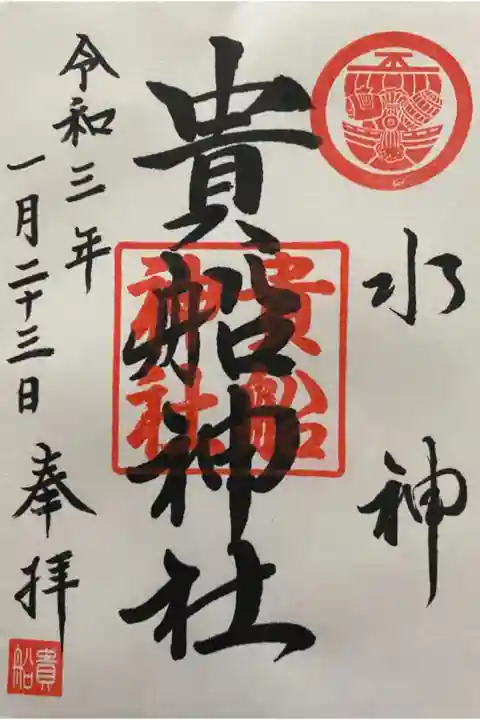 水神
貴船神社
貴船
神社
令和三年
一月二十三日
奉拝
貴船